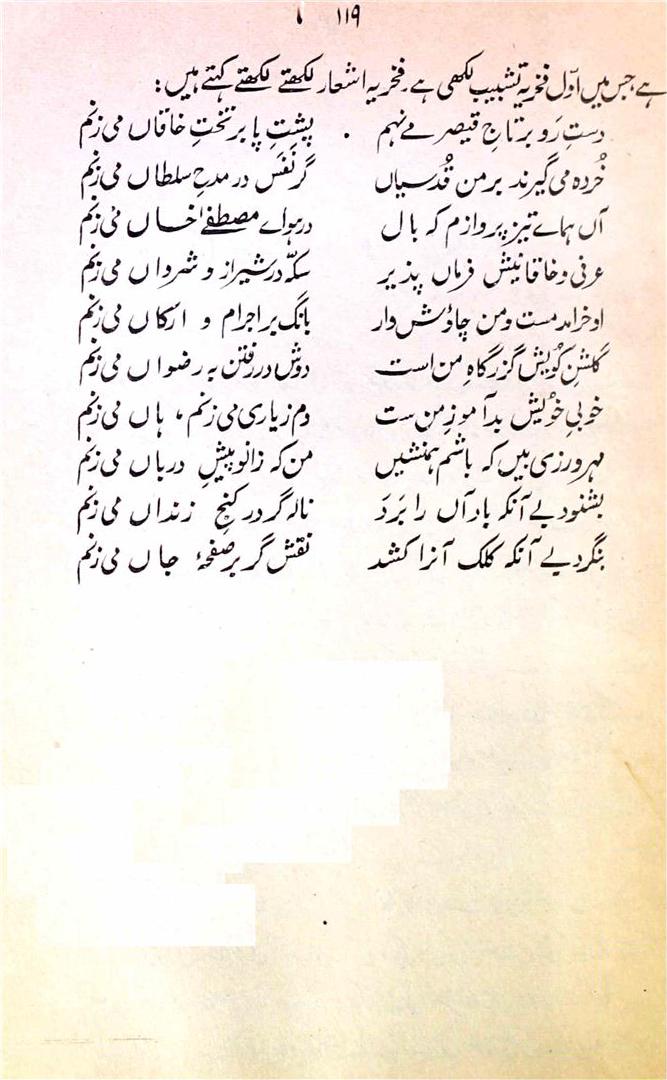 ۱۱۹
ہے جس میں اوّل فخریہ تشبیب لکھی ہے۔ فخریہ اشعار لکھتے لکھتے کہتے ہیں:
دستِ رَو بر تاجِ قیصر مے نہم پشتِ پا بر تختِ خاقاں می زنم
خُردہ می گیرند بر من قُدسیاں گر نَفَس در مدحِ سلطاں می زنم
آں ہماے تیز پروازم کہ بال در ہواے مصطفےٰ خاں می زنم
عرفی و خاقانیش فرماں پذیر سکّہ در شیراز و شرواں می زنم
او خرامد مست و من چاؤش وار بانگ بر اجرام و ارکاں می زنم
گلشنِ کویش گزرگاہِ من است دوش در رفتن بہ رضواں می زنم
خوبیِ خویش بدآموزِ من ست دم ز یاری می زنم، ہاں می زنم
مہرورزی بیں کہ باشم ہمنشیں من کہ زانو پیشِ درباں می زنم
بشنود بے آنکہ باد آں را بَرَد نالہ گر در کنجِ زنداں می زنم
نگرد بے آنکہ کلک آنرا کشد نقش گر بر صفحۂ جاں می زنم